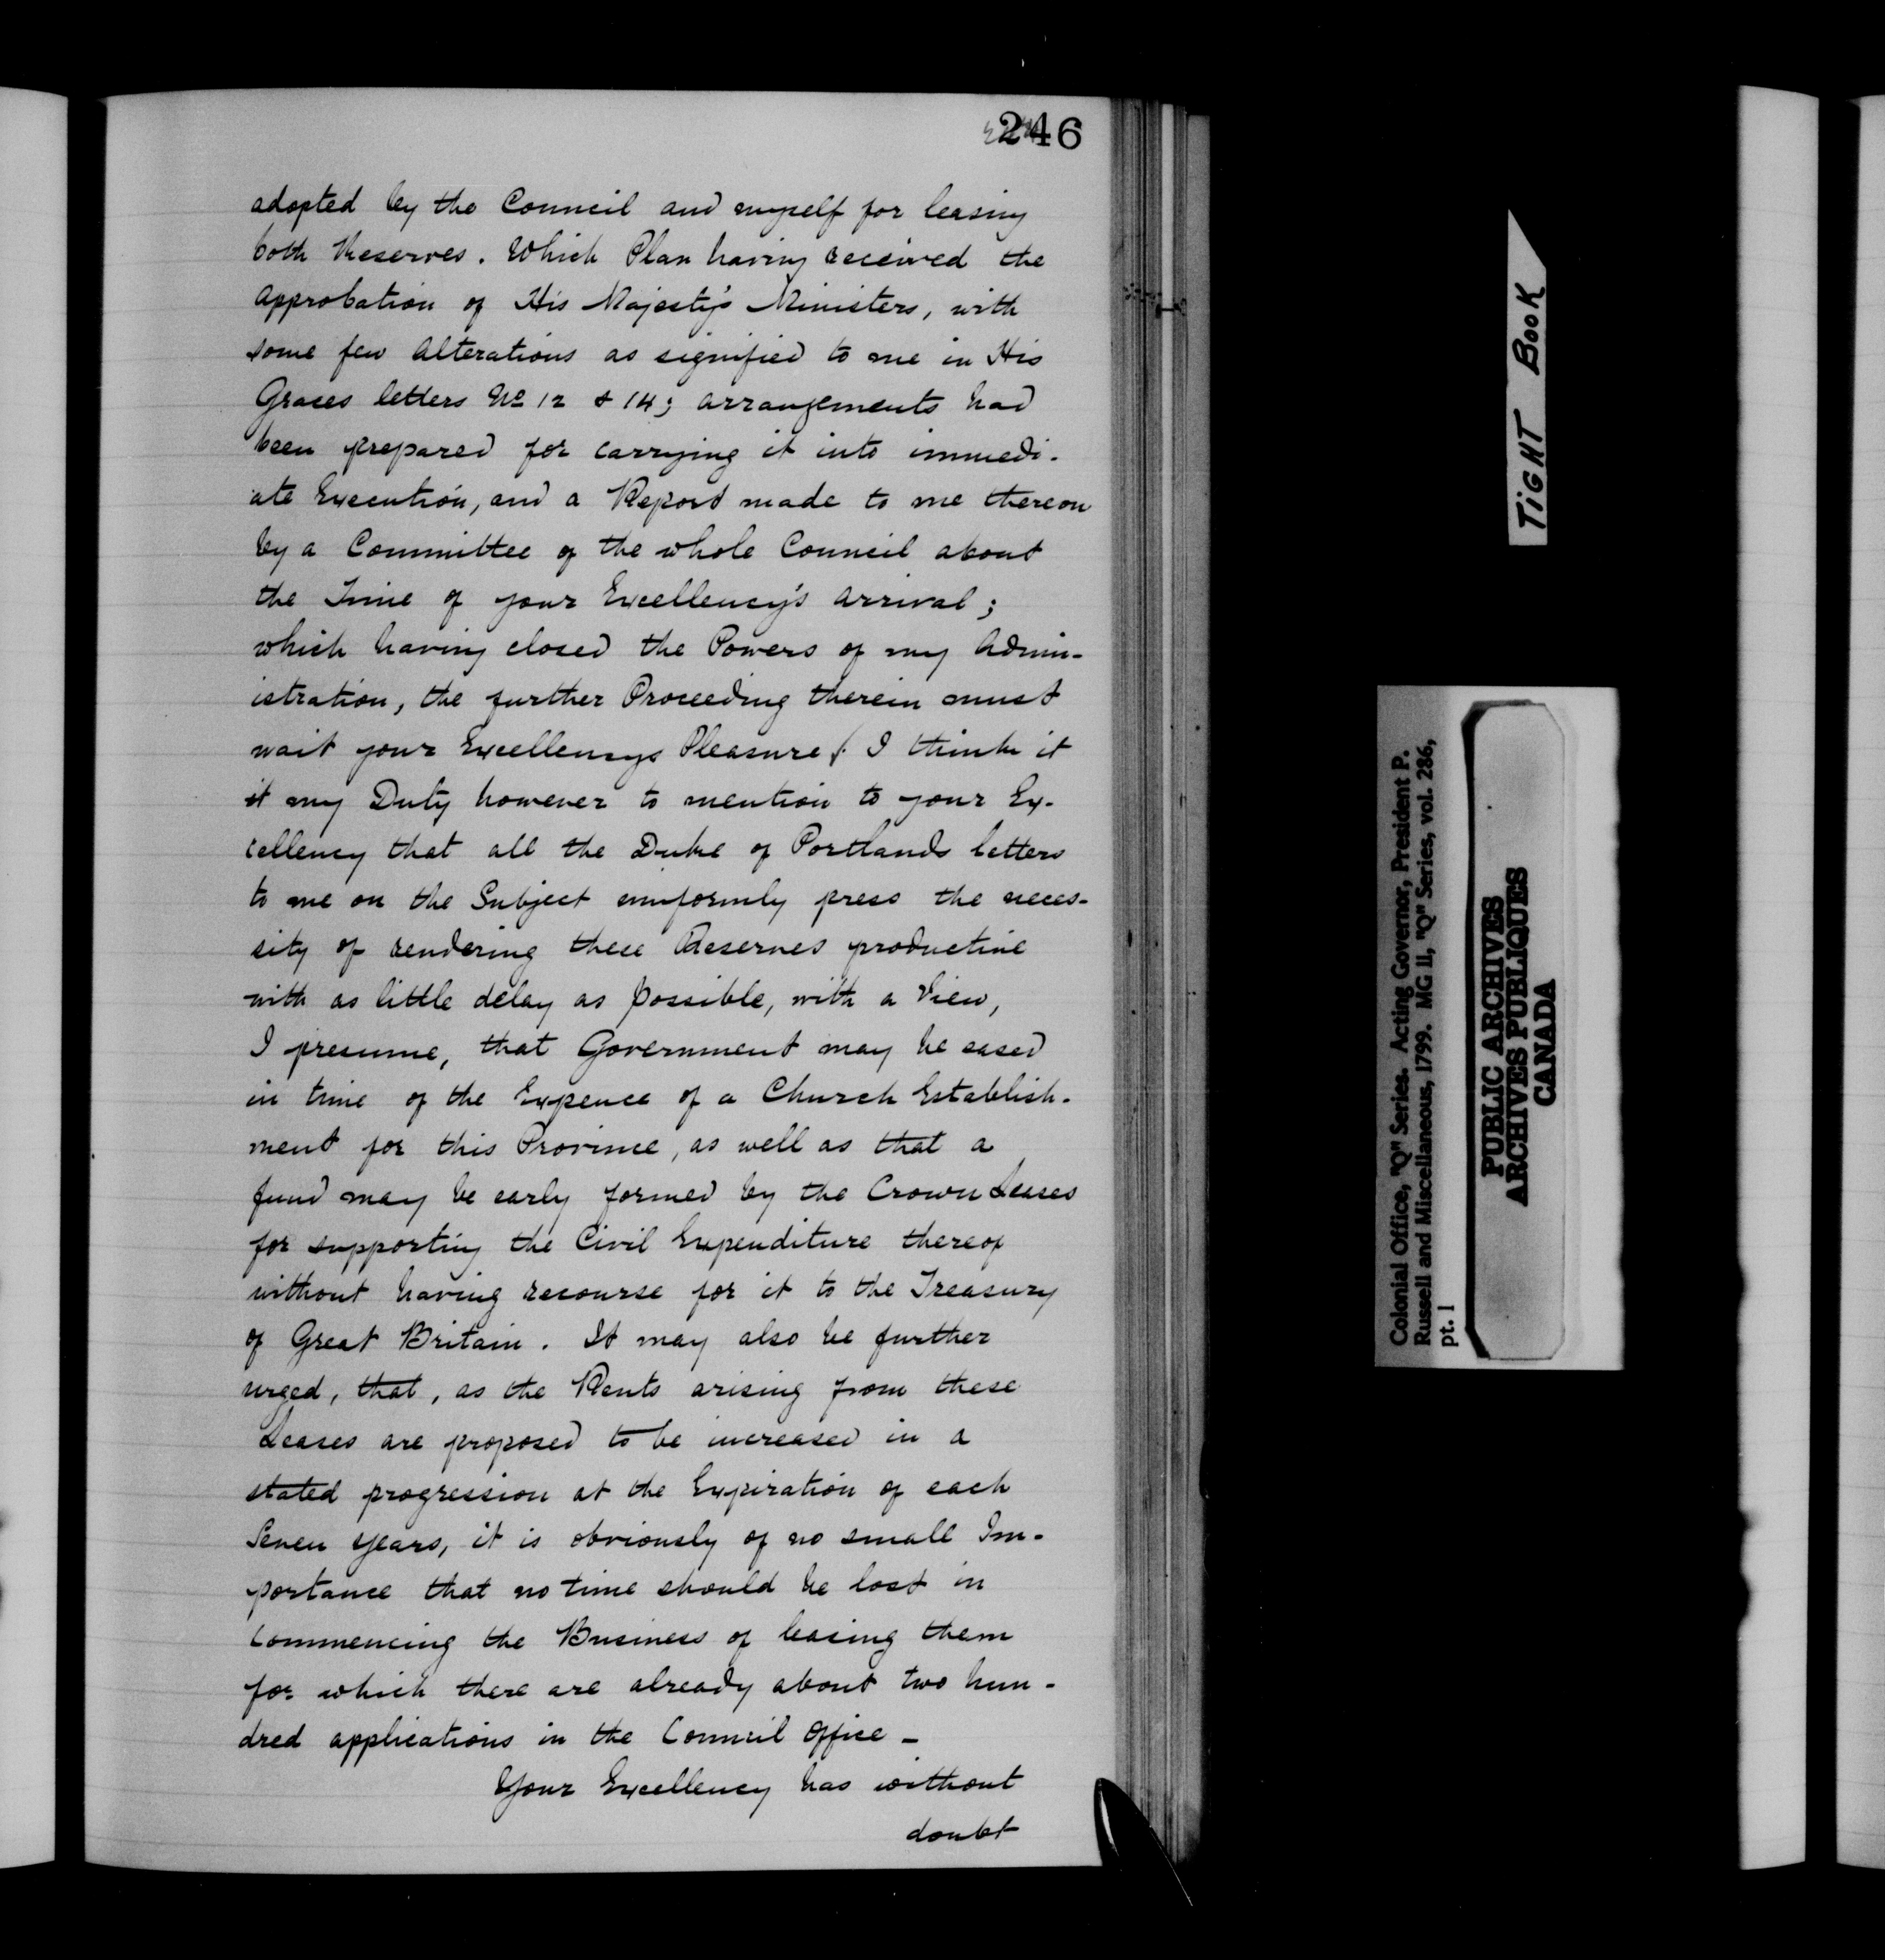 246
adopted by the Council and myself for leasing
both Reserves. Which Plan having received the
Approbation of His Majesty's Ministers, with
some few Alterations as signified to me in His
Graces letters No 12 & 14; arrangements had
been prepared for carrying it into immedi-
ate Execution, and a Report made to me thereon
by a Committee of the whole Council about
the Time of your Excellency's arrival;
which having closed the Powers of my Admin-
istration, the further Proceeding therein must
wait your Excellencys Pleasure. I think it
it my Duty however to mention to your Ex-
cellency that all the Duke of Portlands letters
to me on the Subject uniformly press the neces-
sity of rendering these Reserves productive
with as little delay as possible, with a View,
I presume, that Government may be eased
in time of the Expence of a Church Establish-
ment for this Province, as well as that a
fund may be early formed by the Crown Leases
for supporting the Civil Expenditure thereof
without having recourse for it to the Treasury
of Great Britain. It may also be further
urged, that, as the Rents arising from these
Leases are proposed to be increased in a
stated progression at the Expiration of each
Seven years, it is obviously of no small Im-
portance that no time should be lost in
commencing the Business of leasing them
for which there are already about two hun-
dred applications in the Council Office -
Your Excellency has without
doubt
TIGHT BOOK
Colonial Office, "Q" Series. Acting Governor, President P.
Russell and Miscellaneous, 1799. MG 11, "Q" Series, vol. 286,
pt. 1
PUBLIC ARCHIVES
ARCHIVES PUBLIQUES
CANADA